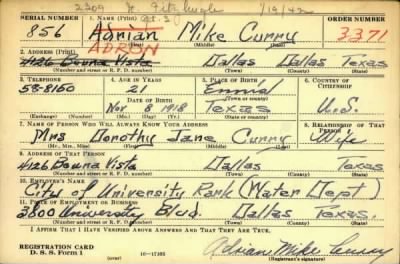 2309 Fitzhugh 1/19/42
SERIAL NUMBER 1. NAME (Print) ORDER NUMBER
856 Adrian Mike Curry 3371
ADRON
(First) (Middle) (Last)
2. ADDRESS (Print)
4126 Buena Vista Dallas Dallas Texas
(Number and street or R. F. D. number) (Town) (County) (State)
3. TELEPHONE 4. AGE IN YEARS 5. PLACE OF BIRTH 6. COUNTRY OF CITIZENSHIP
58-8160 21 Ennis
DATE OF BIRTH (Town or county)
Nov 8 1918 Texas U.S.
(Exchange) (Number) (Mo.) (Day) (Yr.) (State or country)
7. NAME OF PERSON WHO WILL ALWAYS KNOW YOUR ADDRESS 8. RELATIONSHIP OF THAT PERSON
Mrs Dorothy Jane Curry Wife
(Mr., Mrs., Miss) (First) (Middle) (Last)
9. ADDRESS OF THAT PERSON
4126 Bouna Vista Dallas Texas
(Number and street or R. F. D. number) (Town) (County) (State)
10. EMPLOYER'S NAME
City of University Park (Water Dept)
11. PLACE OF EMPLOYMENT OR BUSINESS
3800 University Blvd. Dallas Texas.
(Number and street or R. F. D. number) (Town) (County) (State)
I AFFIRM THAT I HAVE VERIFIED ABOVE ANSWERS AND THAT THEY ARE TRUE.
REGISTRATION CARD
D. S. S. Form 1 16-17105 Adrian Mike Curry
(Registrant's signature)